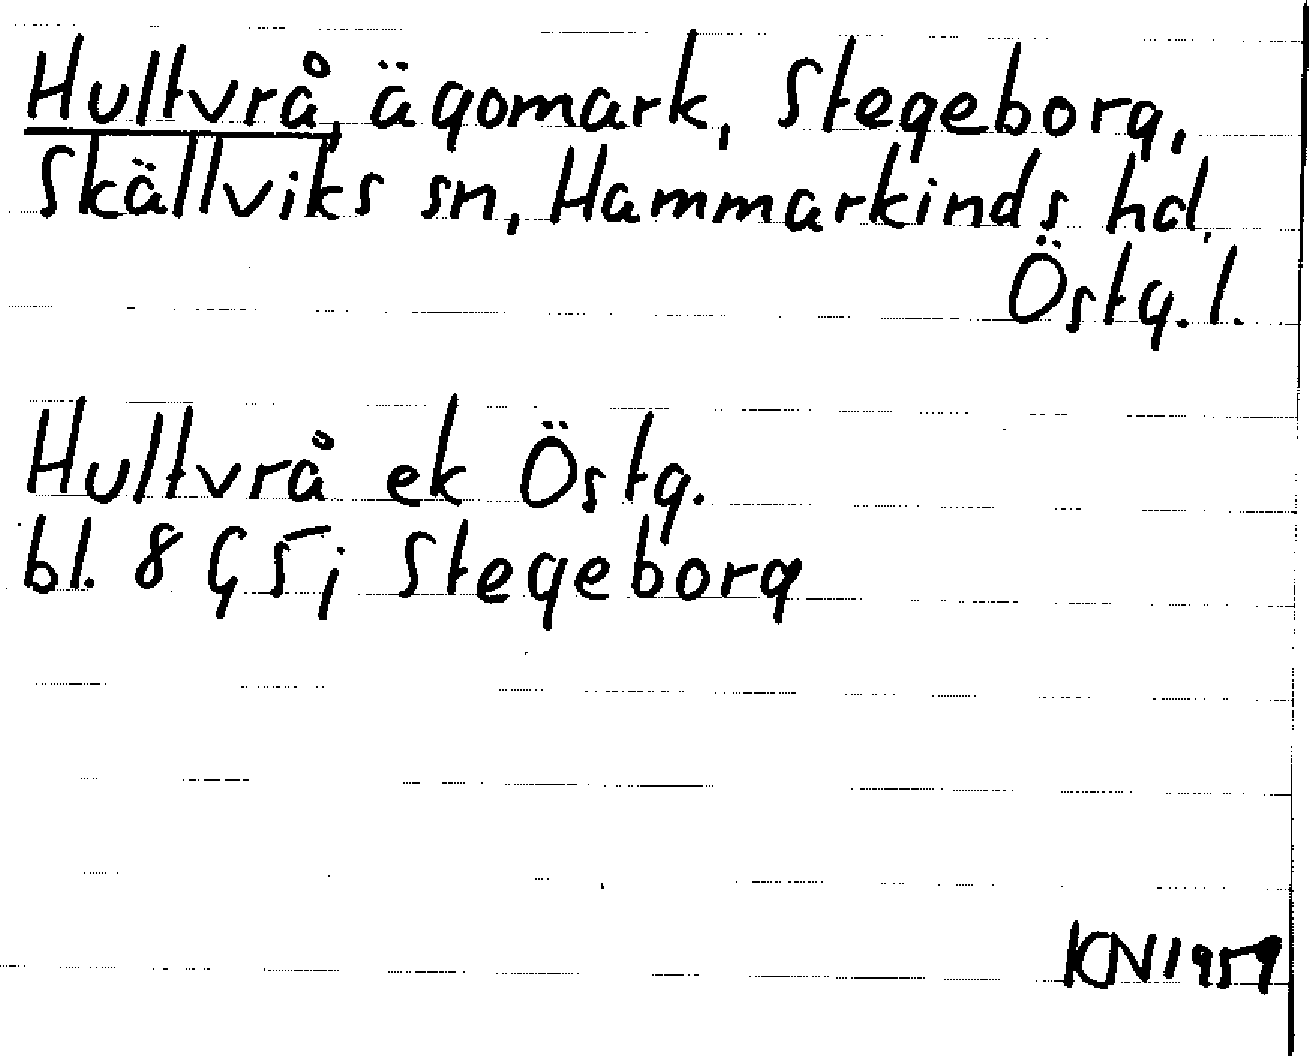 Hultvrå, ägomark, Stegeborg,
Skällviks sn, Hammarkinds hd.
Östg. l.
Hultvrå ek Östg.
bl. 8 G 5 i Stegeborg
KN 1959